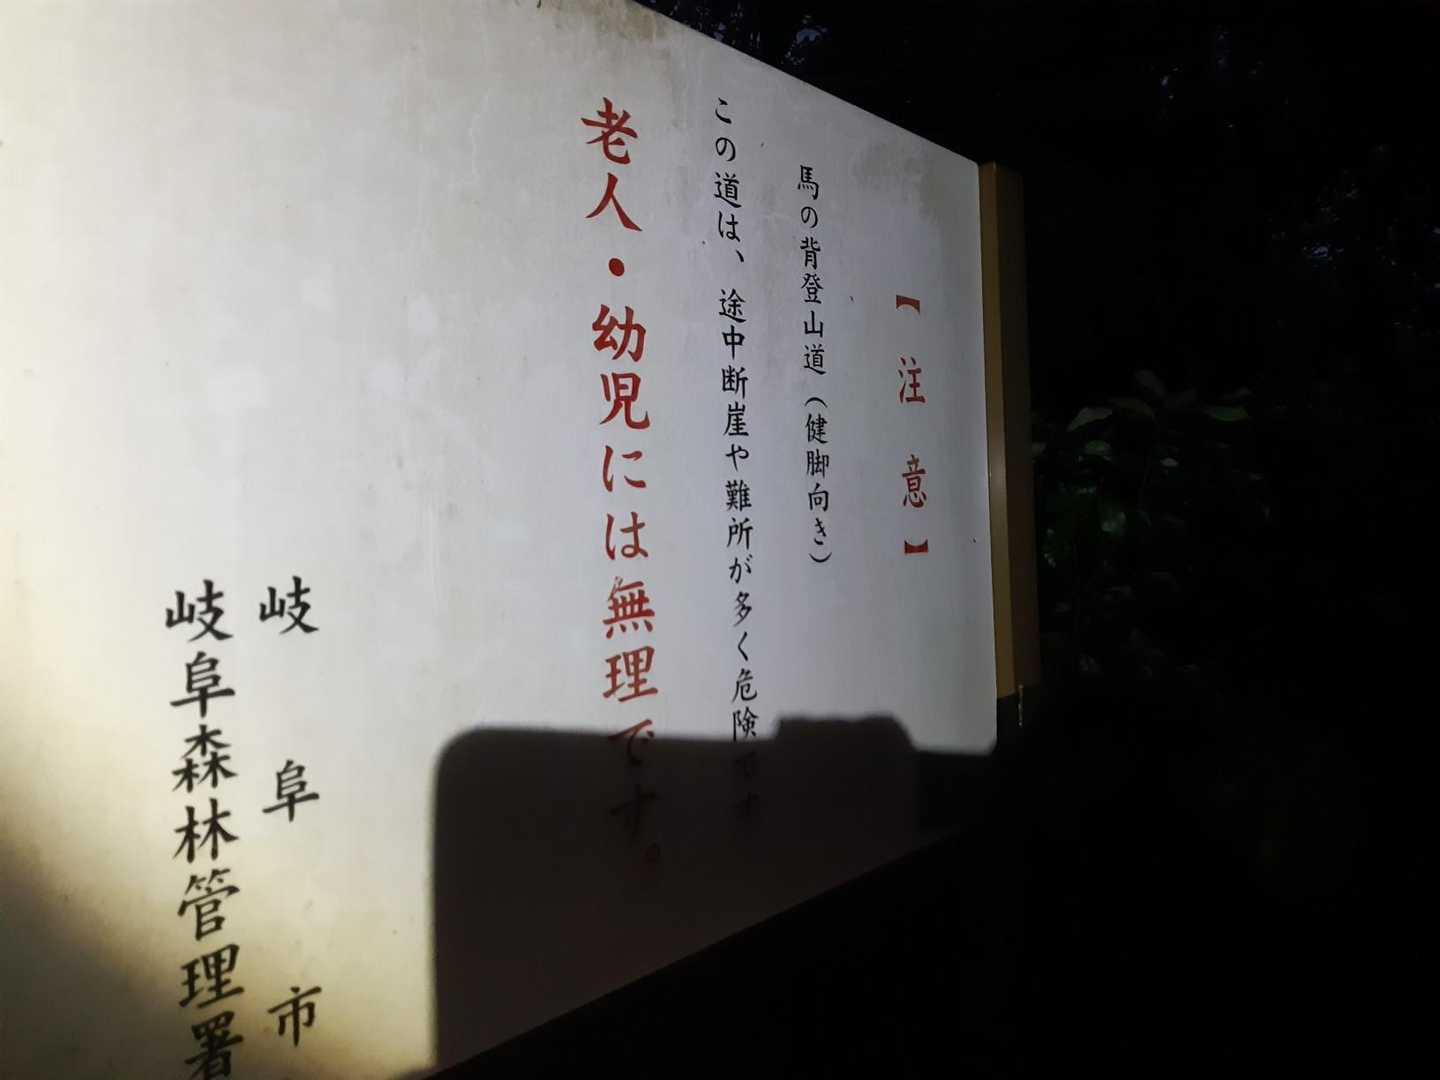 【注意】
馬の背登山道（健脚向き）
この道は、途中断崖や難所が多く危険です
老人・幼児には無理です。
岐阜市
岐阜森林管理署